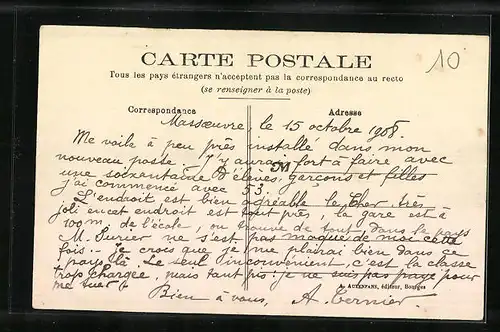 10
CARTE POSTALE
Tous les pays étrangers n'acceptent pas la correspondance au recto
(se renseigner à la poste)
Correspondance
Adresse
Massœuvre, le 15 octobre 1908.
Me voilà à peu près installé dans mon
nouveau poste. J'y aurai fort à faire avec
une soixantaine d'élèves, garçons et filles
j'ai commencé avec 53.
L'endroit est bien agréable le Cher très
joli en cet endroit est tout près, la gare est à
100m de l'école, on trouve de tout dans le pays
M. ne s'est pas moqué de moi cette
fois. Je crois que je me plairai bien dans ce
pays là. Le seul inconvénient c'est la classe
trop chargée, mais tant pis: je ne suis pas payé pour
me tuer
Bien à vous, A. Ternier.
JM
A. Auxenfans, éditeur, Bourges